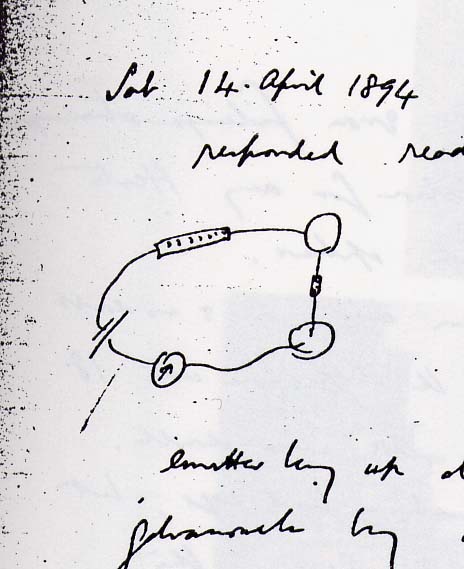 Sat 14. April 1894
responded
emitter being up
galvanometer being